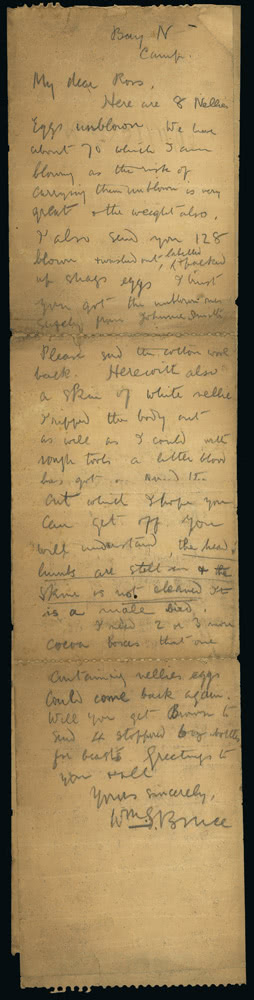 Bay N
Camp.
My dear Ross,
Here are 8 Nellies
Eggs unblown We have
about 70 which I am
blowing as the risk of
carrying them unblown is very
great & the weight also.
I also send you 128
blown & washed out, labelled & packed
up shags eggs I trust
you got the unblown ones
safely from Johnnie Smith
Please send the cotton wool
back. Herewith also
a skin of white nellie
I ripped the body out
as well as I could with
rough tools a little blood
has got
out which I hope you
can get off. You
will understand, the head
are still in & the
skin is not cleaned It
is a male bird.
I need 2 or 3 more
cocoa boxes that one
containing nellies eggs
could come back again.
Will you get Brown to
send 4 stoppered bottles
for beasts Greetings to
you all
Yours sincerely,
Wm. S. Bruce